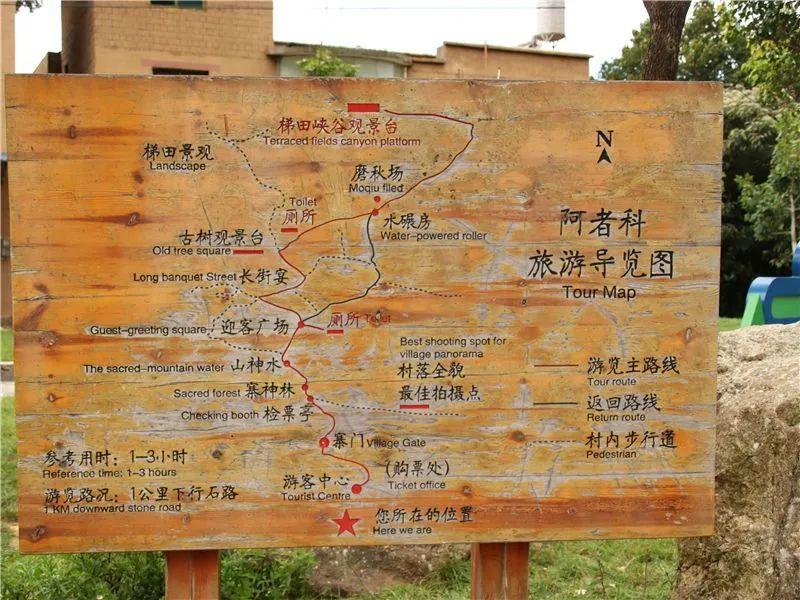 梯田峡谷观景台
Terraced fields canyon platform
N
梯田景观
Landscape
磨秋场
Moqiu filed
Toilet
厕所
水碾房
Water-powered roller
阿者科
旅游导览图
Tour Map
古树观景台
Old tree square
Long banquet Street 长街宴
Guest-greeting square 迎客广场
厕所 Toilet
Best shooting spot for
village panorama
村落全貌
最佳拍摄点
The sacred-mountain water 山神水
Sacred forest 寨神林
Checking booth 检票亭
游览主路线
Tour route
返回路线
Return route
村内步行道
Pedestrian
寨门 Village Gate
参考用时：1-3小时
Reference time: 1-3 hours
游览路况：1公里下行石路
1 KM downward stone road
游客中心
Tourist Centre
(购票处)
Ticket office
您所在的位置
Here we are